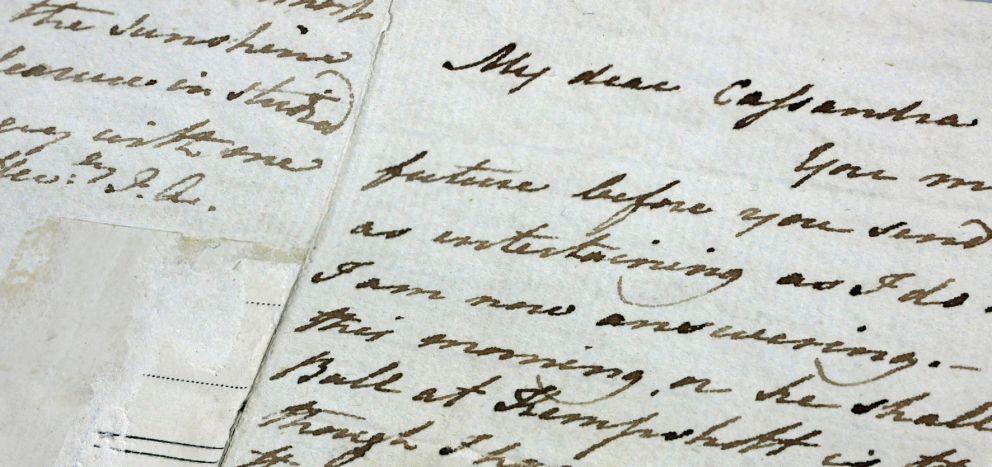 the sunshine
in
with one
J. A.
My dear Cassandra
You
future before you send
as entertaining as I do.
I am now answering.—
this morning, or he shall
Ball at Kempshott is
though I